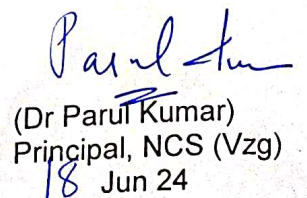 Parul Kumar
(Dr Parul Kumar)
Principal, NCS (Vzg)
18 Jun 24